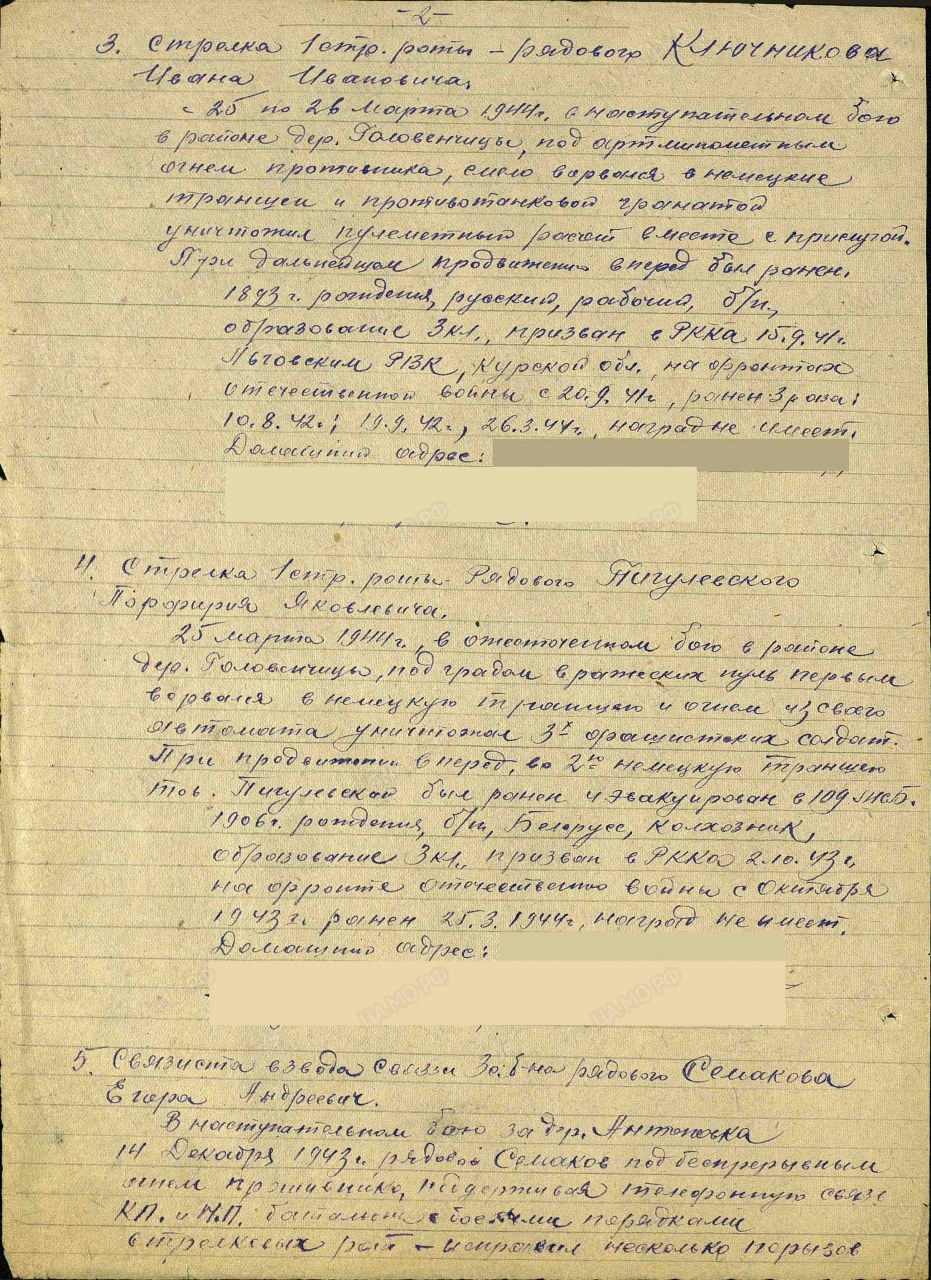 -2-
3. Стрелка 1 стр. роты – рядового Ключникова
Ивана Ивановича,
с 25 по 26 марта 1944г. в наступательном бою
в районе дер. Головенчицы, под артминометным
огнем противника, смело ворвался в немецкие
траншеи и противотанковой гранатой
уничтожил пулеметный расчет вместе с прислугой.
При дальнейшем продвижении вперед был ранен.
1893 г. рождения, русский, рабочий, б/п,
образование 3кл., призван в РККА 15.9.41г.
Льговским РВК, Курской обл., на фронтах
отечественной войны с 20.9.41г., ранен 3 раза:
10.8.42г.; 19.9.42г., 26.3.44г., наград не имеет.
Домашний адрес:
4. Стрелка 1 стр. роты - Рядового Пигулевского
Порфирия Яковлевича.
25 марта 1944г., в ожесточенном бою в районе
дер. Головенчицы, под градом вражеских пуль первым
ворвался в немецкую траншею и огнем из своего
автомата уничтожил 3х фашистских солдат.
При продвижении вперед, во 2ю немецкую траншею
тов. Пигулевский был ранен и эвакуирован в 109 МСБ.
1906г. рождения, б/п, Белорусс, колхозник,
образование 3кл., призван в РККА 2.10.43г.
на фронте отечественной войны с Октября
1943г. ранен 25.3.1944г., наград не имеет.
Домашний адрес:
5. Связиста взвода связи 3с.б-на рядового Семакова
Егора Андреевич.
В наступательном бою за дер. Антоновка
14 Декабря 1943г. рядовой Семаков под беспрерывным
огнем противника, поддерживая телефонную связь
КП. и Н.П. батальона с боевыми порядками
стрелковых рот – исправил несколько порывов
ЦАМО.РФ
ЦАМО.РФ
ЦАМО.РФ